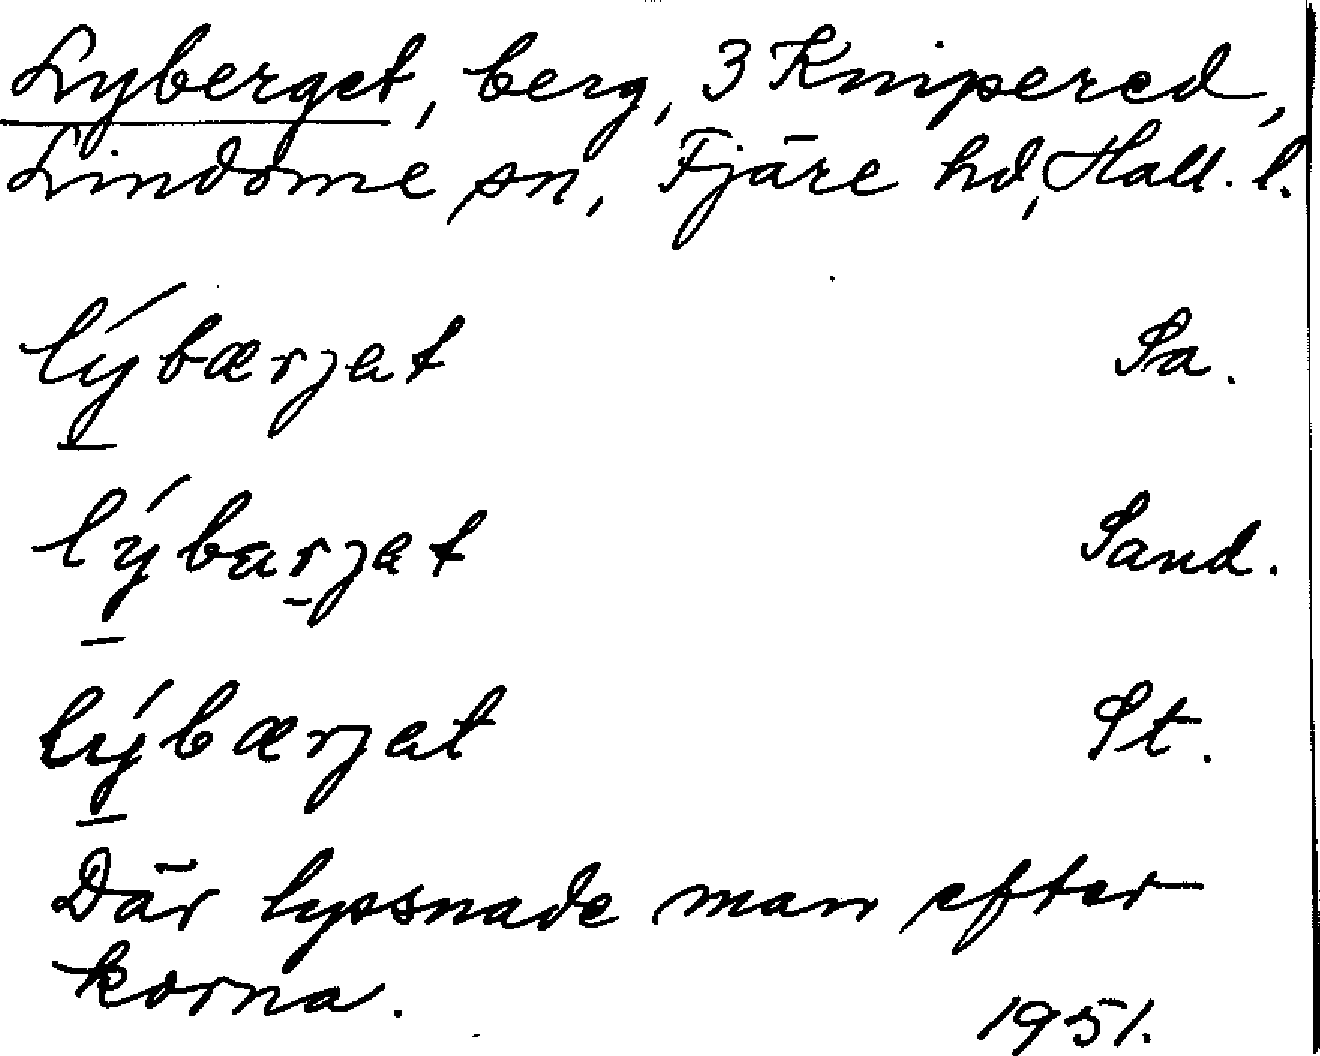 Lyberget, berg, 3 Knipered,
Lindome sn, Fjäre hd, Hall. l.
lýbærjat Sa.
lýbærjat Sand.
lýbærjat St.
Där lyssnade man efter
korna.
1951.